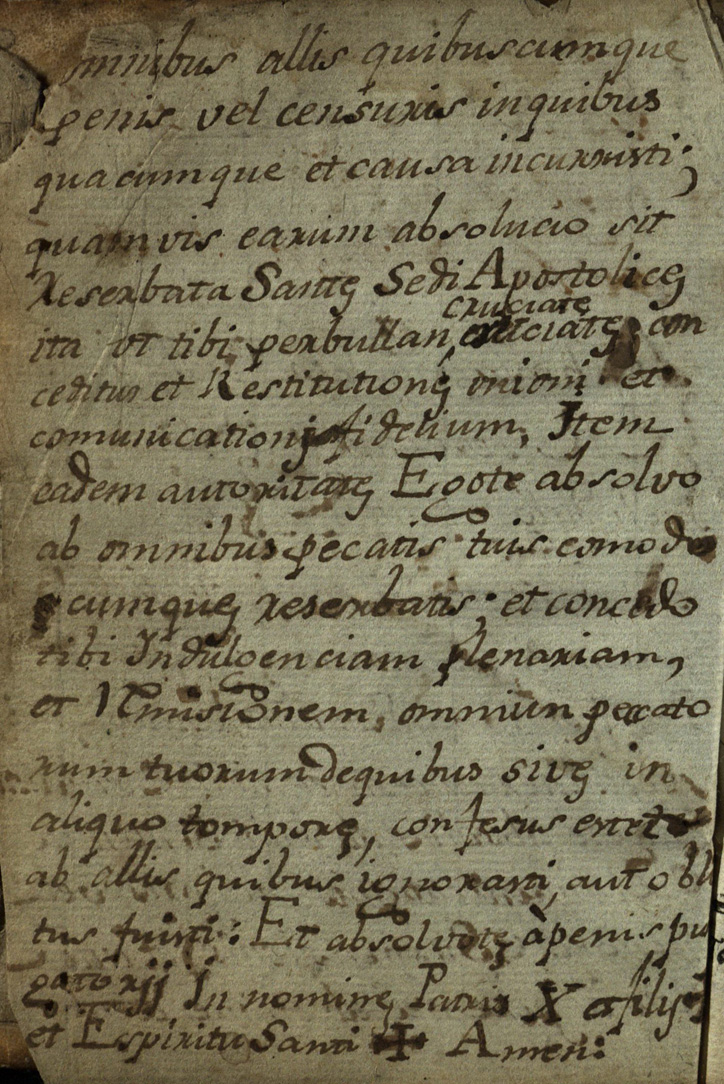 omnibus allis quibuscumque
penis vel censuris inquibus
quacumque et causa incurristi;
quamvis earum absolucio sit
Reserbata Sante Sedi Apostolice
cruciate
ita vt tibi perbullan, cruciate con
ceditur et Restitutione vnioni et
comunicationi fidelium, Item
eadem autoritate Egote absolvo
ab omnibus pecatis tuis comodo
cumque reserbatis; et concedo
tibi Indulgenciam plenariam,
et Remisionem, omniun peccato
rum tuorum dequibus sive in
aliquo tompore, confesus
ab allis quibus ignorasti, aut obli
tus fuisti: Et absolvote àpenis pu
gatorij In nomine Patris X et filij
et Espiritu Santi ✝ Amen: